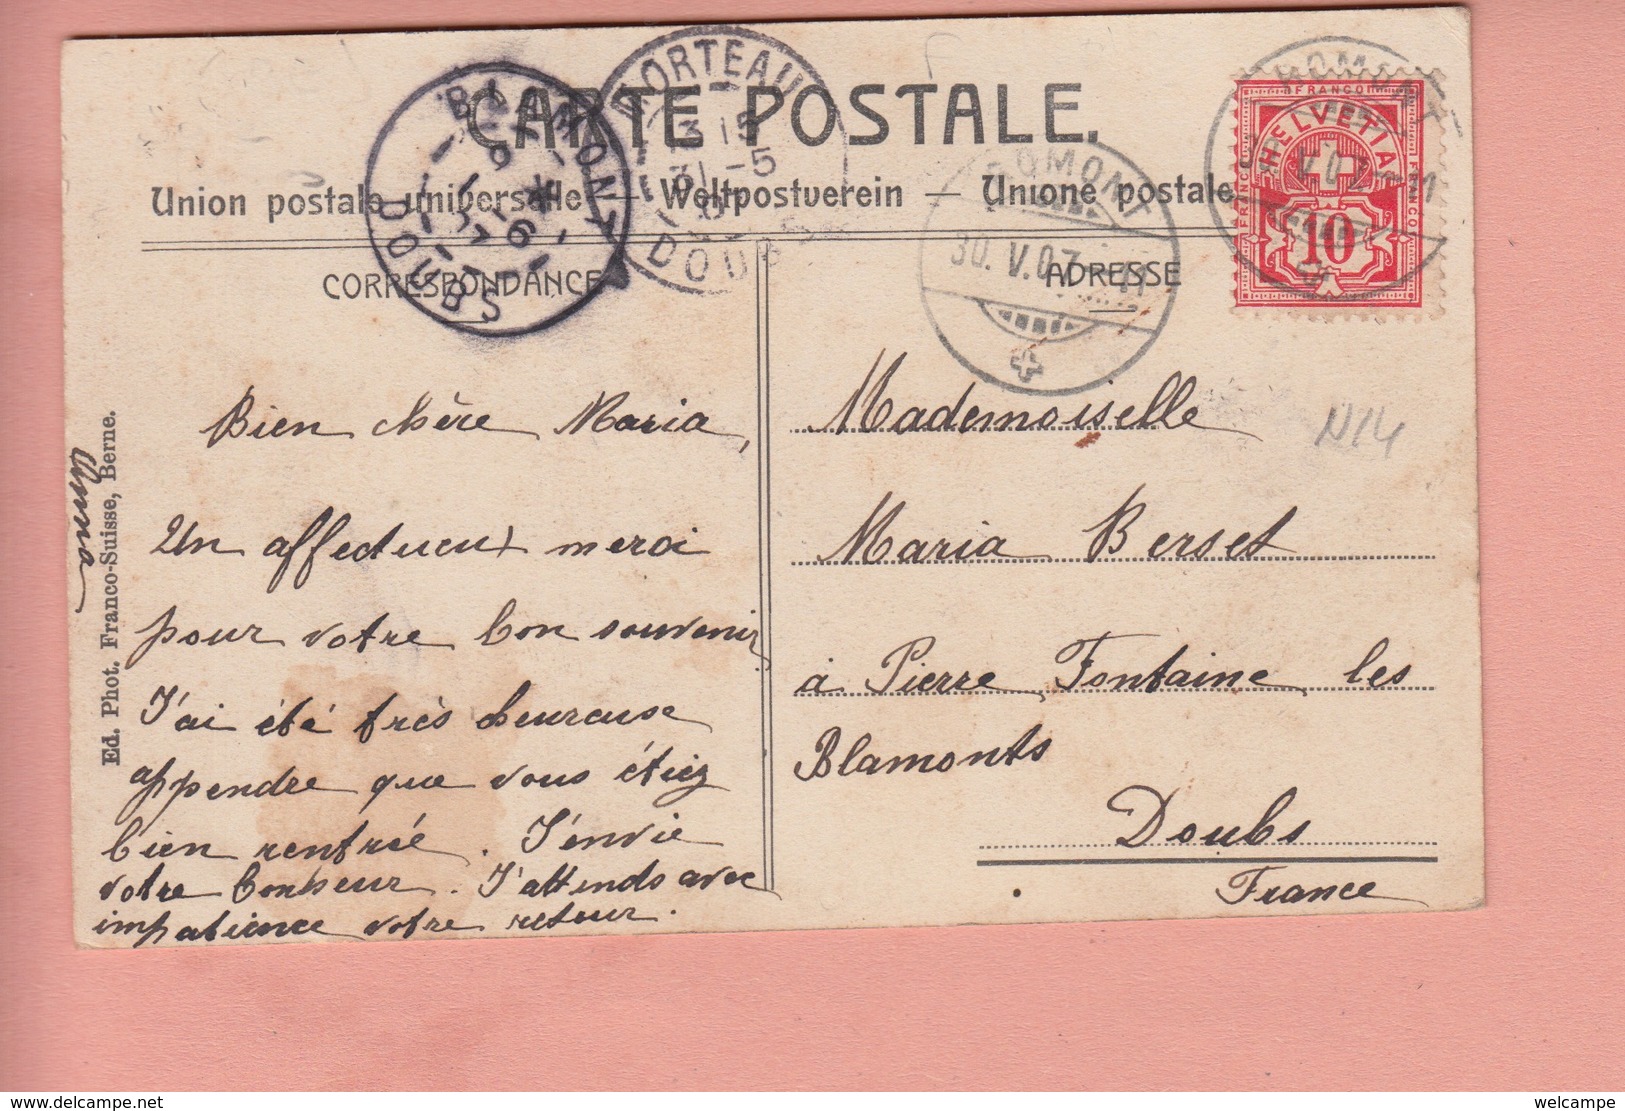 CARTE POSTALE.
Union postale universelle — Weltpostverein — Unione postale
CORRESPONDANCE
ADRESSE
BLAMONT
DOUBS
MORTEAU
3 15
31-5
DOUBS
ROMONT
30. V. 07. -11
ROMONT
V. 07-11
FRANCO
HELVETIA
FRANCO
FRANCO
10
N14
Bien chère Maria,
Un affectueux merci
pour votre bon souvenir
J'ai été très heureuse
apprendre que vous étiez
bien rentrée. J'envie
votre bonheur. J'attends avec
impatience votre retour.
Anna
Ed. Phot. Franco-Suisse, Berne.
Mademoiselle
Maria Berset
à Pierre Fontaine les
Blamonts
Doubs
France
www.delcampe.net
welcampe